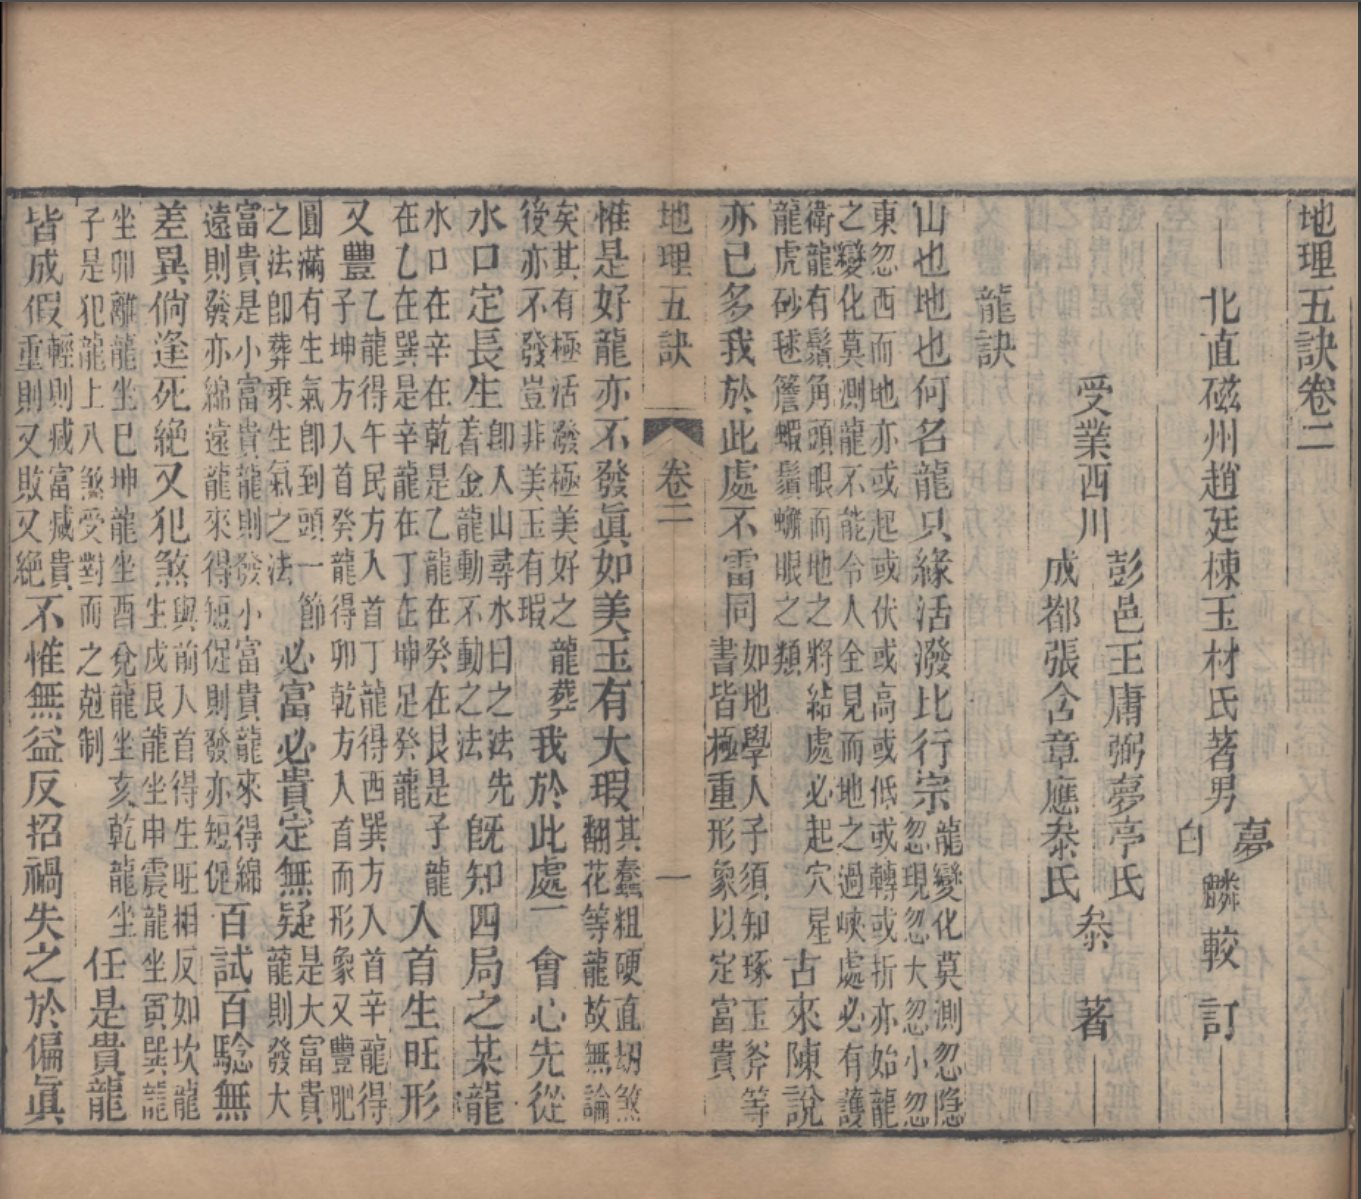 地理五訣卷二
北直磁州趙廷棟玉材氏著男夢白麟較訂
受業西川
彭邑王庸弼夢亭氏
成都張含章應泰氏
叅著
龍訣
山也地也何名龍只緣活潑比行宗
龍變化莫測忽隐
忽現忽大忽小忽
東忽西而地亦或起或伏或高或低或轉或折亦始龍
之變化莫測龍不能令人全見而地之過峽處必有護
衛龍有鬚角頭眼而地之將結處必起穴星
龍虎砂毬簷蝦鬚蠏眼之類
古來陳說
亦已多我於此處不雷同
如地學人子須知琢玉斧等
書皆極重形象以定富貴
地理五訣
卷二
一
惟是好龍亦不發眞如美玉有大瑕
其蠢粗硬直刼煞
翻花等龍故無論
矣其有極活潑極美好之龍葬
後亦不發豈非美玉有瑕
我於此處一會心先從
水口定長生
卽入山尋水口之法先
着金龍動不動之法
旣知四局之某龍
水口在辛在乾是乙龍在癸在艮是子龍
在乙在巽是辛龍在丁在坤足癸龍
入首生旺形
又豐
乙龍得午民方入首丁龍得酉巽方入首辛龍得
子坤方入首癸龍得卯乾方入首而形象又豐肥
圓滿有生氣卽到頭一節
之法卽葬乘生氣之法
必富必貴定無疑
是大富貴
龍則發大
富貴是小富貴龍則發小富貴龍來得綿
遠則發亦綿遠龍來得短促則發亦短促
百試百騐無
差異倘逢死絶又犯煞
與前入首得生旺相反如坎龍
生戌艮龍坐申震龍坐寅巽龍
坐卯離龍坐巳坤龍坐酉兌龍坐亥乾龍坐
子是犯龍上八煞受對面之尅制
任是貴龍
皆成假
輕則臧富臧貴
重則又敗又絶
不惟無益反招禍失之於偏眞